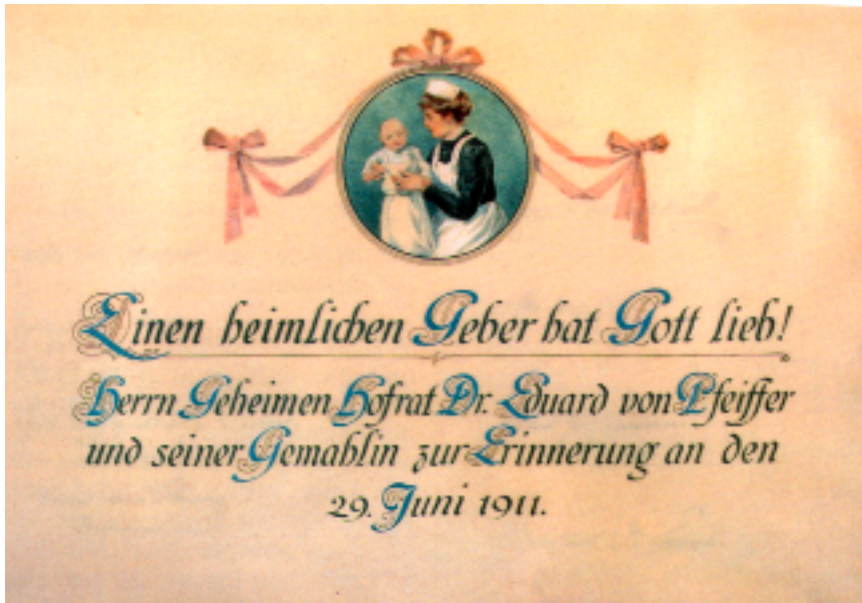 Einen heimlichen Geber hat Gott lieb!
Herrn Geheimen Hofrat Dr. Eduard von Pfeiffer
und seiner Gemahlin zur Erinnerung an den
29. Juni 1911.